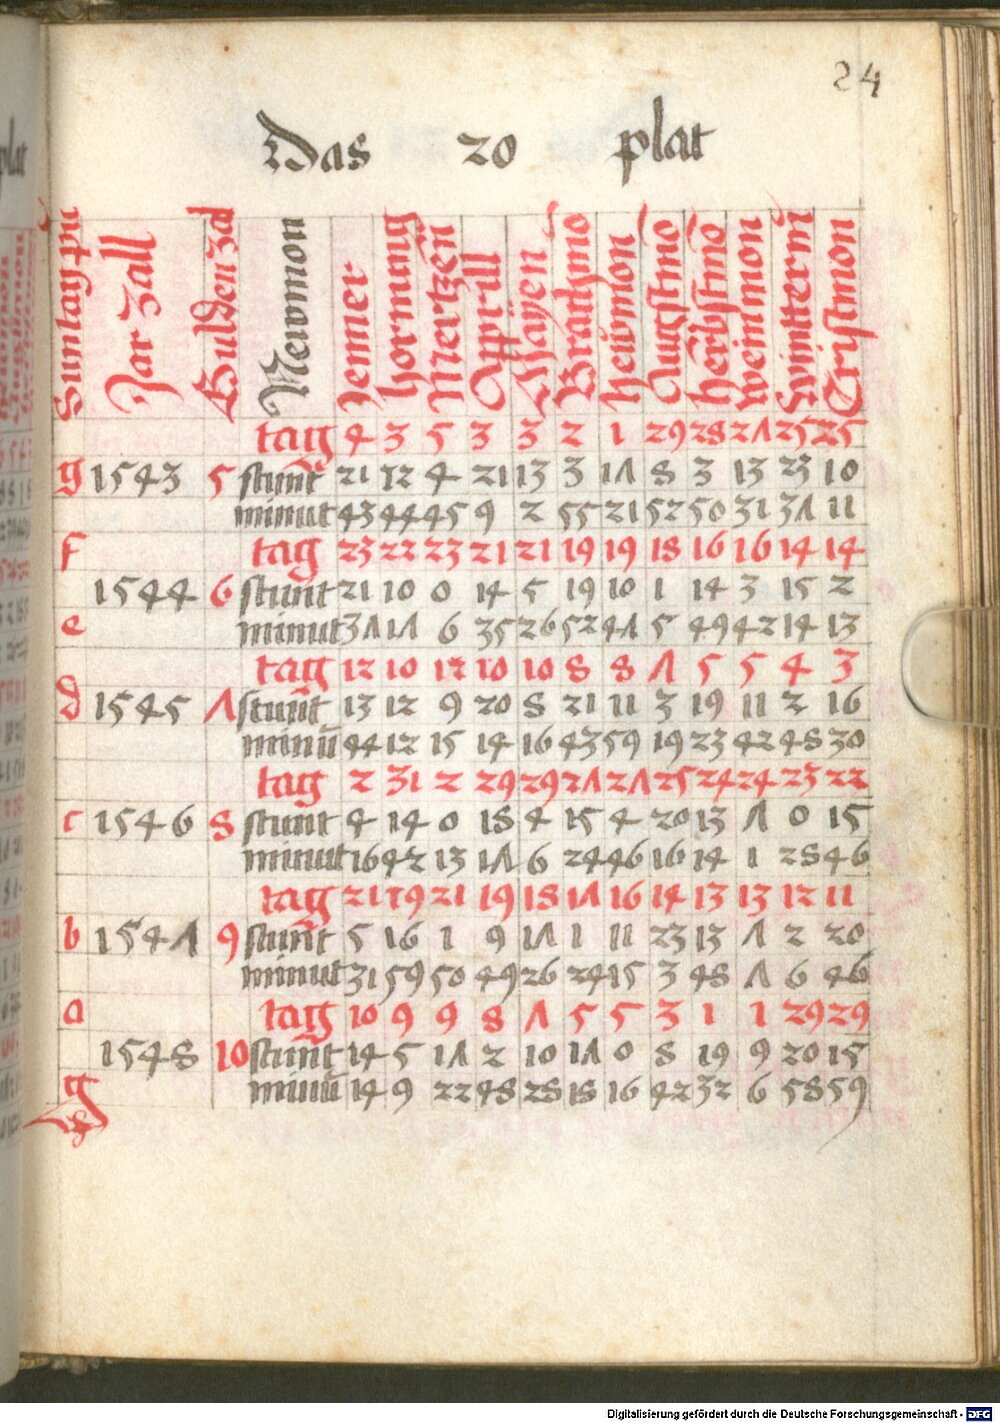 24
Das 20 plat
Suntag Jar Zall Gulden Zal Newmon Jenner Hornung Mertzen Apprill Mayen Brachmo Hewmon Augstmo Herbstmo Weinmon Wintterm Cristmon
tag 4 3 5 3 3 2 1 29 28 27 25 25
g 1543 5 stunt 21 12 4 21 13 3 17 8 3 13 23 10
minut 43 44 45 9 2 55 21 52 50 31 37 11
f tag 23 22 23 21 21 19 19 18 16 16 14 14
1544 6 stunt 21 10 0 14 5 19 10 1 14 3 15 2
e minut 37 17 6 35 26 52 47 5 49 42 14 13
tag 12 10 12 10 10 8 8 7 5 5 4 3
d 1545 7 stunt 13 12 9 20 8 21 11 3 19 11 2 16
minū 44 12 15 14 16 43 59 19 23 42 48 30
tag 2 31 2 29 29 27 27 25 24 24 23 22
c 1546 8 stunt 4 14 0 18 4 15 4 20 13 7 0 15
minut 16 42 13 17 6 24 46 16 14 1 28 46
tag 21 19 21 19 18 17 16 14 13 13 12 11
b 1547 9 stunt 5 16 1 9 17 1 11 23 13 7 2 20
minut 31 59 50 49 26 24 15 3 48 7 6 46
a tag 10 9 9 8 7 5 5 3 1 1 29 29
1548 10 stunt 14 5 17 2 10 17 0 8 19 9 20 15
g minū 14 9 22 48 28 18 16 42 32 6 58 59
Digitalisierung gefördert durch die Deutsche Forschungsgemeinschaft - DFG